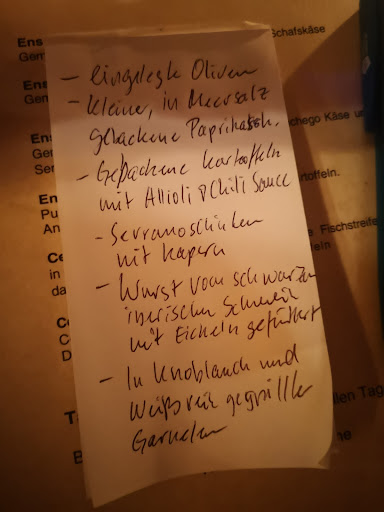 Schafskäse
Ens
Ger
Ens
Gem
En
Ger
Ser
chego Käse
En
Pu
An
toffeln.
Fischstreife
Ce
in
da
Co
C
D
T
B
llen Tag
ne
- eingelegte Oliven
- kleine, in Meersalz
gebackene Paprikasch.
- Gebackene Kartoffeln
mit Allioli & Chili Sauce
- Serranoschinken
mit Kapern
- Wurst vom schwarzen
iberischen Schwein
mit Eicheln gefüttert
- In Knoblauch und
Weißwein gegrillte
Garnelen